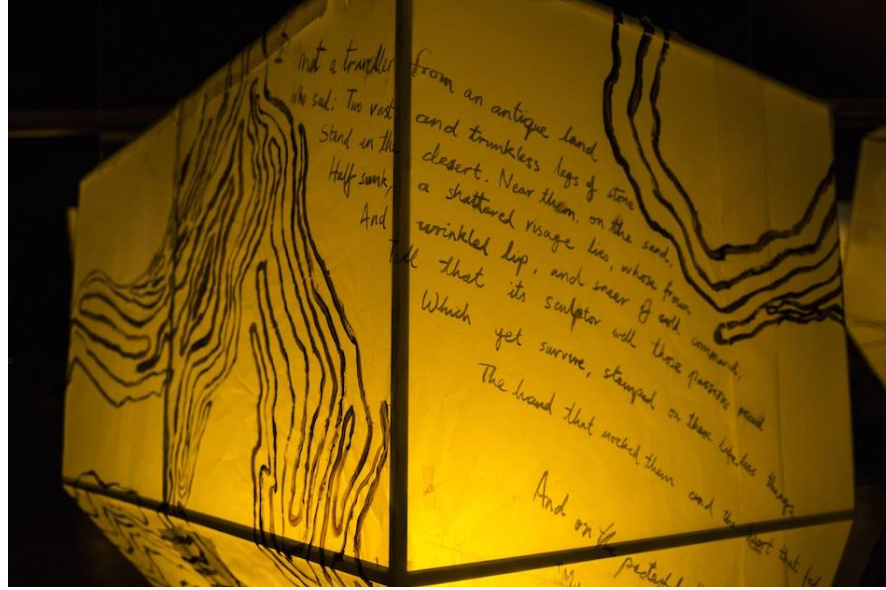 I met a traveller from an antique land
Who said: Two vast and trunkless legs of stone
Stand in the desert. Near them, on the sand,
Half sunk, a shattered visage lies, whose frown
And wrinkled lip, and sneer of cold command,
Tell that its sculptor well those passions read
Which yet survive, stamped on these lifeless things,
The hand that mocked them and the heart that fed
And on the pedestal
"My